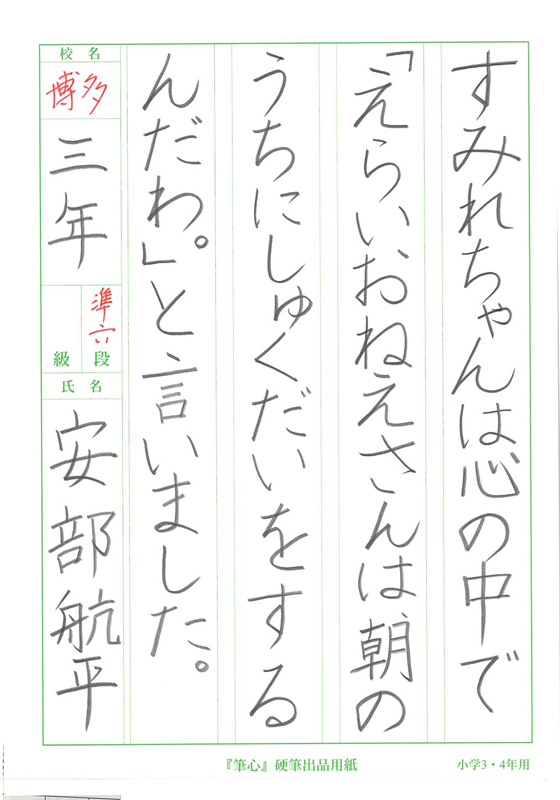 すみれちゃんは心の中で
「えらいおねえさんは、朝の
うちにしゅくだいをする
んだわ。」と言いました。
校名
博多
三年
準六
級段
氏名
安部航平
『筆心』硬筆出品用紙
小学3・4年用